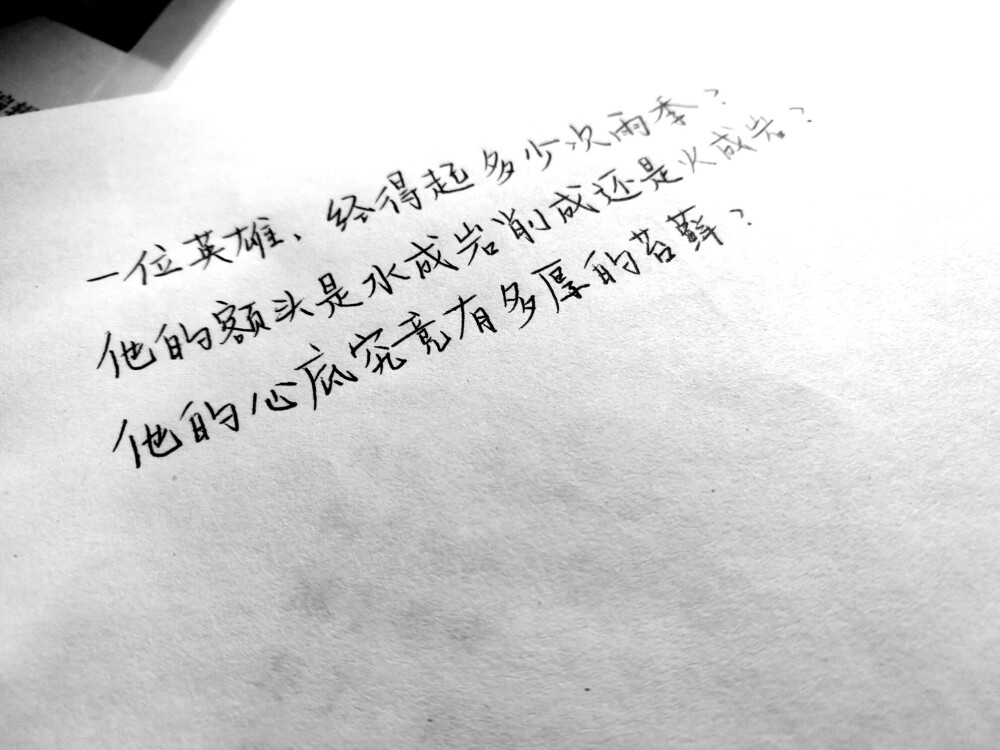 一位英雄、经得起多少次雨季？
他的额头是水成岩削成还是火成岩？
他的心底究竟有多厚的苔藓？